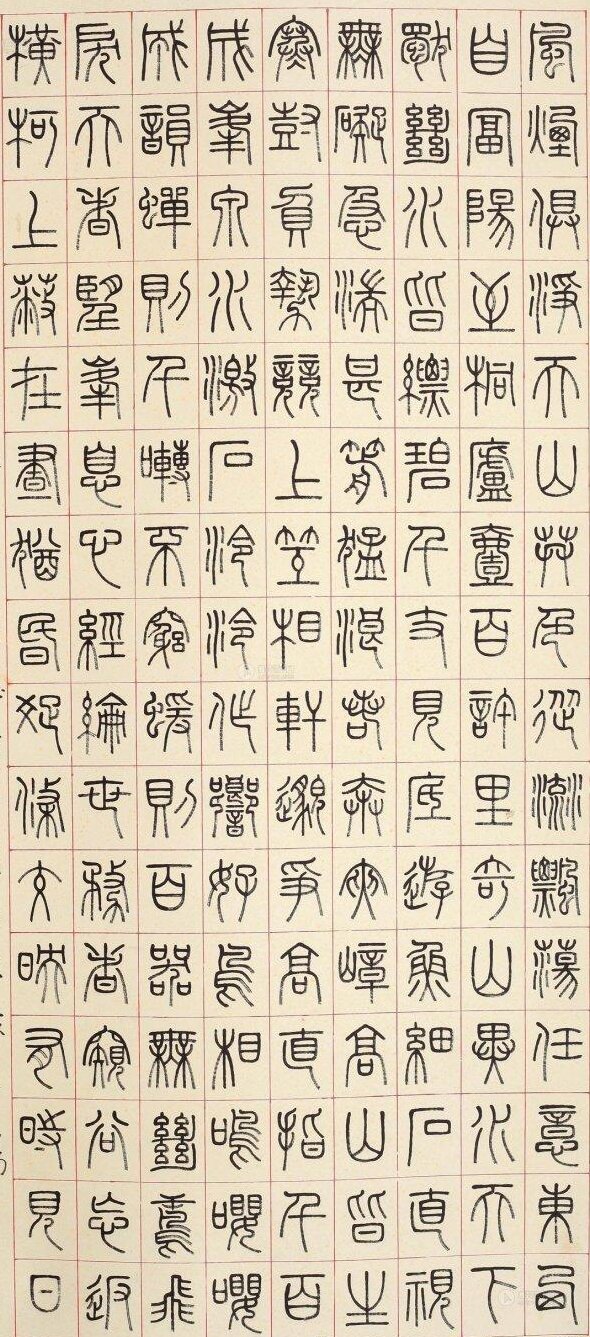 風煙俱淨天山共色從流飄蕩任意東西
自富陽至桐廬壹百許里奇山異水天下
獨絕水皆縹碧千丈見底遊魚細石直視
無礙急湍甚箭猛浪若奔夾嶂高山皆生
寒尌負勢競上笠相軒邈爭高直指千百
成峯泉水激石泠泠作響好鳥相鳴嚶嚶
成韻蟬則千囀不窮蝯則百嘂無絕鳶飛
戾天者望峯息心經綸世務者窺谷忘返
橫柯上蔽在晝猶昏疏條交映有時見日